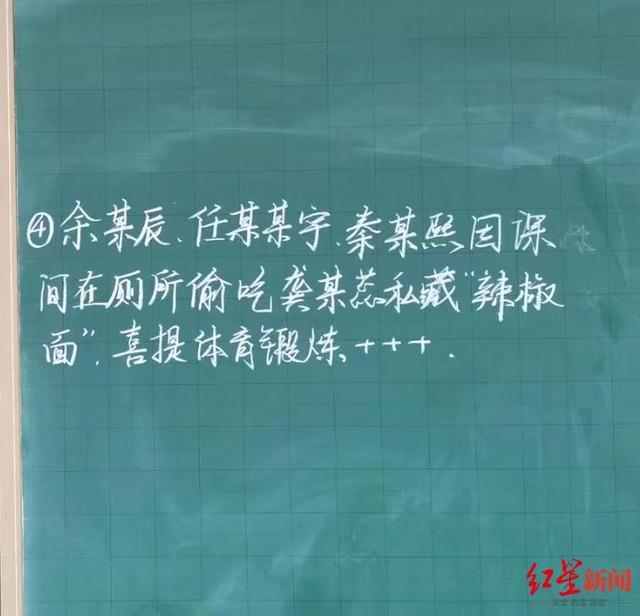 ④余某辰、任某某宇、秦某熙因课
间在厕所偷吃龚某蕊私藏“辣椒
面”,喜提体育锻炼+++.
红星新闻
深度 态度 温度